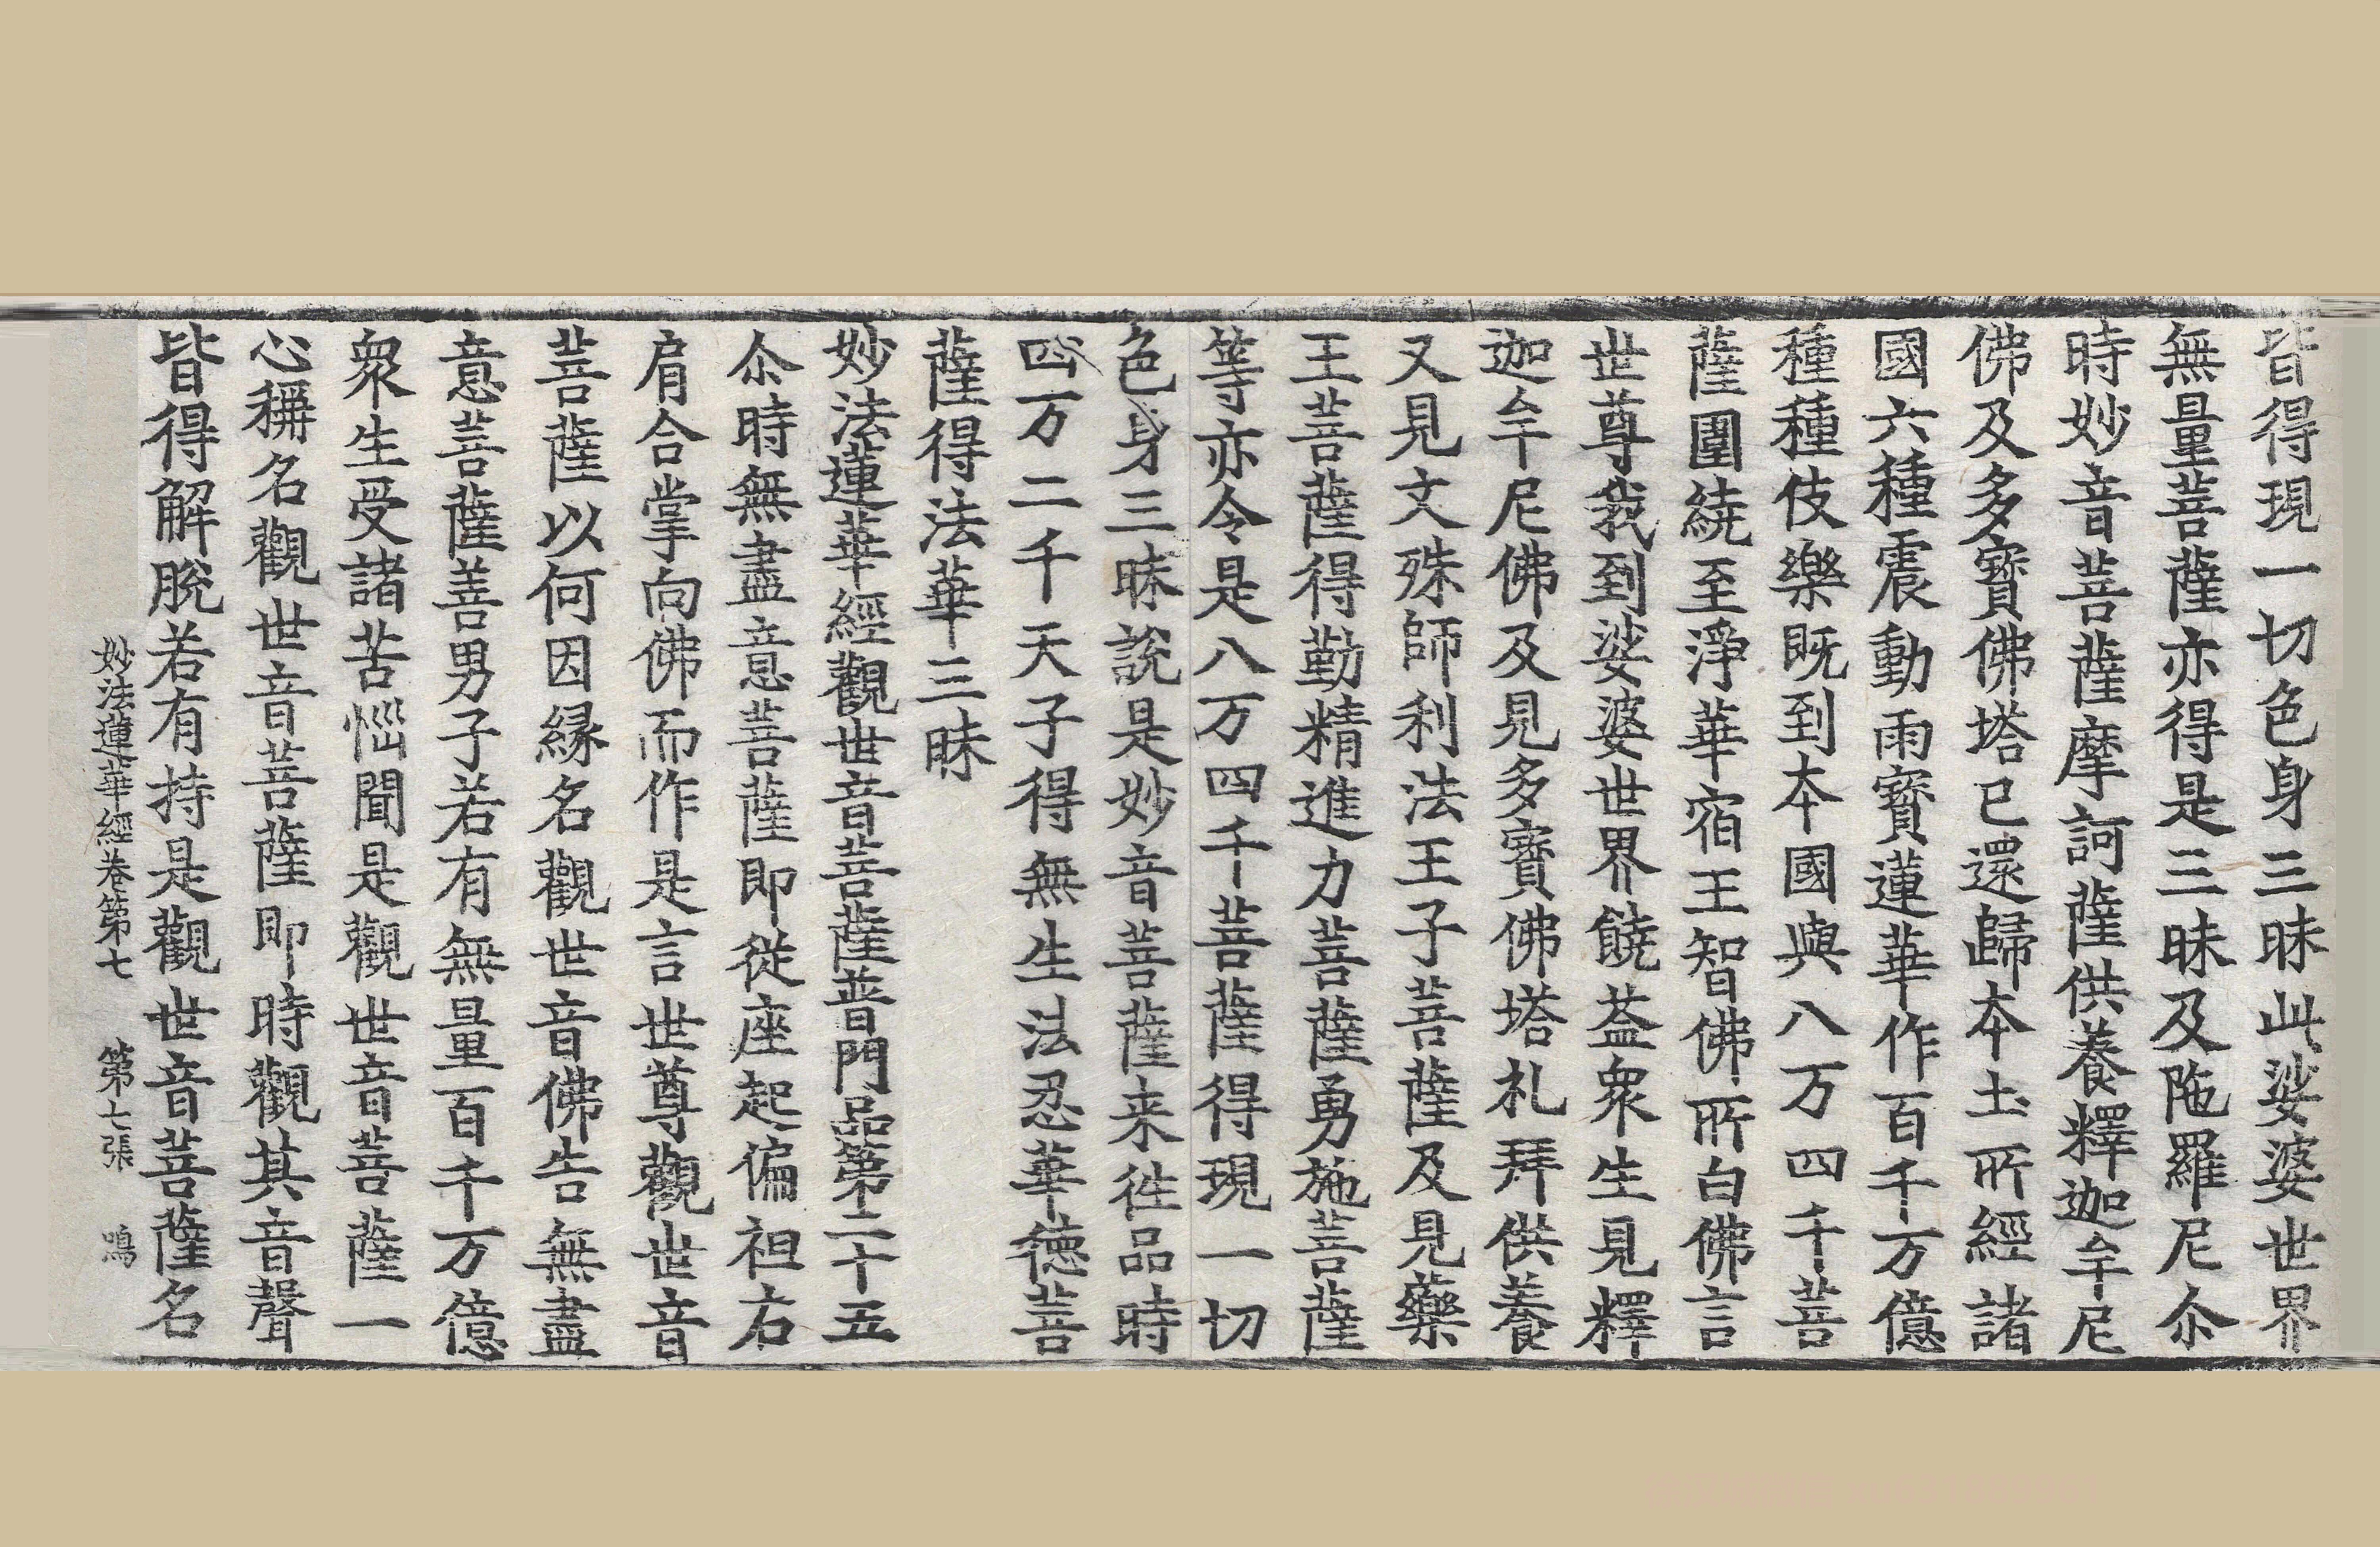 皆得現一切色身三昧此娑婆世界
無量菩薩亦得是三昧及陁羅尼尒
時妙音菩薩摩訶薩供養釋迦牟尼
佛及多寳佛塔已還歸本土所經諸
國六種震動雨寳蓮華作百千万億
種種伎樂既到本國與八万四千菩
薩圍繞至淨華宿王智佛所白佛言
世尊我到娑婆世界饒益衆生見釋
迦牟尼佛及見多寳佛塔礼拜供養
又見文殊師利法王子菩薩及見藥
王菩薩得勤精進力菩薩勇施菩薩
等亦令是八万四千菩薩得現一切
色身三昧說是妙音菩薩来徃品時
四万二千天子得無生法忍華德菩
薩得法華三昧
妙法蓮華經觀世音菩薩普門品第二十五
尒時無盡意菩薩即從座起偏袒右
肩合掌向佛而作是言世尊觀世音
菩薩以何因緣名觀世音佛告無盡
意菩薩善男子若有無量百千万億
衆生受諸苦惱聞是觀世音菩薩一
心稱名觀世音菩薩即時觀其音聲
皆得解脫若有持是觀世音菩薩名
妙法蓮華經卷第七 第七張 鳴